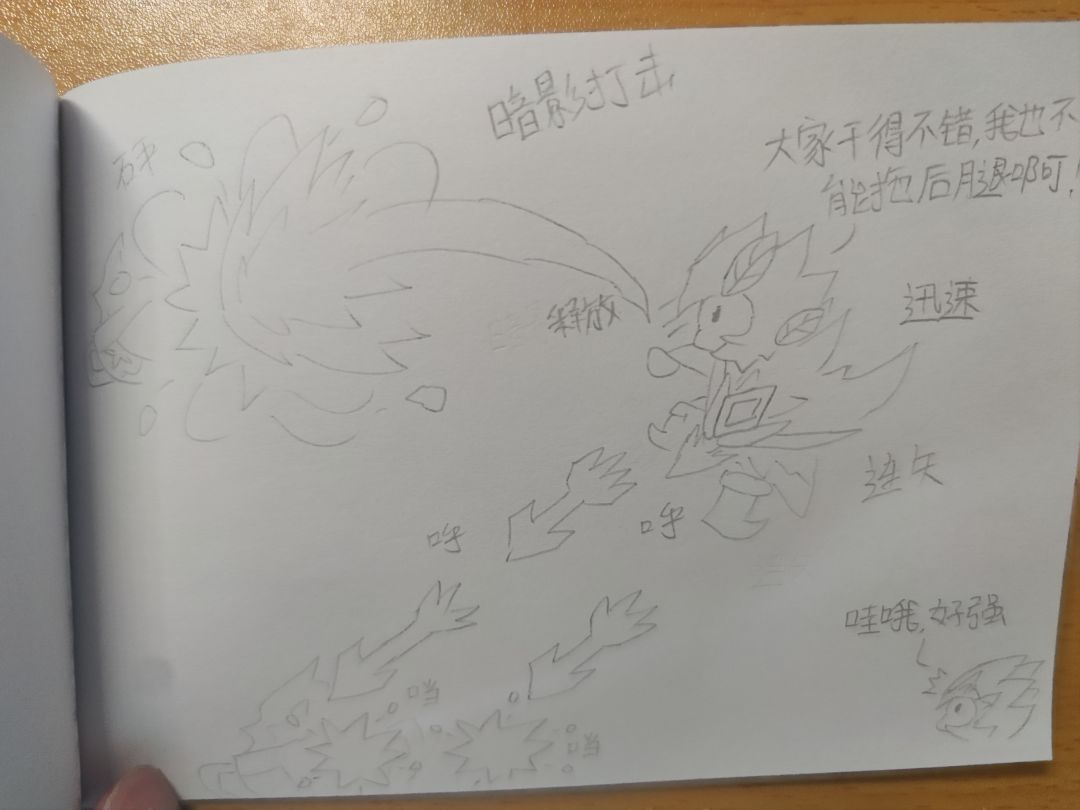 暗影打击
大家干得不错,我也不
能拖后腿啊!
砰
释放
迅速
连矢
呼
呼
哇哦,好强
当
当